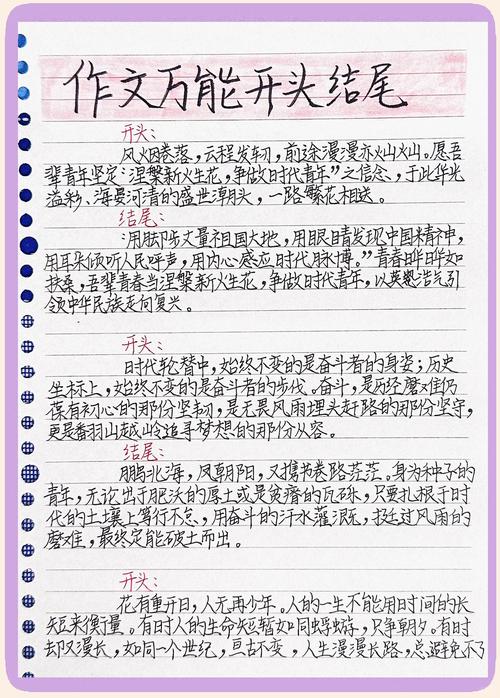 作文万能开头结尾
开头:
风烟卷落,云程发轫,前途漫漫亦灿灿。愿吾
辈青年坚定“涅槃新火生花,争做时代青年”之信念,于此华光
溢彩、海晏河清的盛世潮头,一路繁花相送。
结尾:
“用脚步丈量祖国大地,用眼睛发现中国精神,
用耳朵倾听人民呼声,用内心感应时代脉搏。”青春晔晔如
扶桑,吾辈青春当涅槃新火生花,争做时代青年,以英浩气引
领中华民族走向复兴。
开头:
时代轮替中,始终不变的是奋斗者的身姿;历史
坐标上,始终不变的是奋斗者的步伐。奋斗,是历经磨难仍
葆有初心的那份坚韧,是无畏风雨埋头赶路的那份坚守,
更是翻山越岭追寻梦想的那份从容。
结尾:
鹏北海,凤朝阳,又携书卷路茫茫。身为种子的
青年,无论出于肥沃的厚土或是贫瘠的瓦砾,只要扎根于时
代的土壤上笃行不怠,用奋斗的汗水灌溉,挺过风雨的
磨难,最终定能破土而出。
开头:
花有重开日,人无再少年。人的一生不能用时间的长
短来衡量。有时人的生命短暂如同蜉蝣,只争朝夕。有时
却又漫长,如同一个世纪,亘古不变,人生漫漫长路,总避免不了